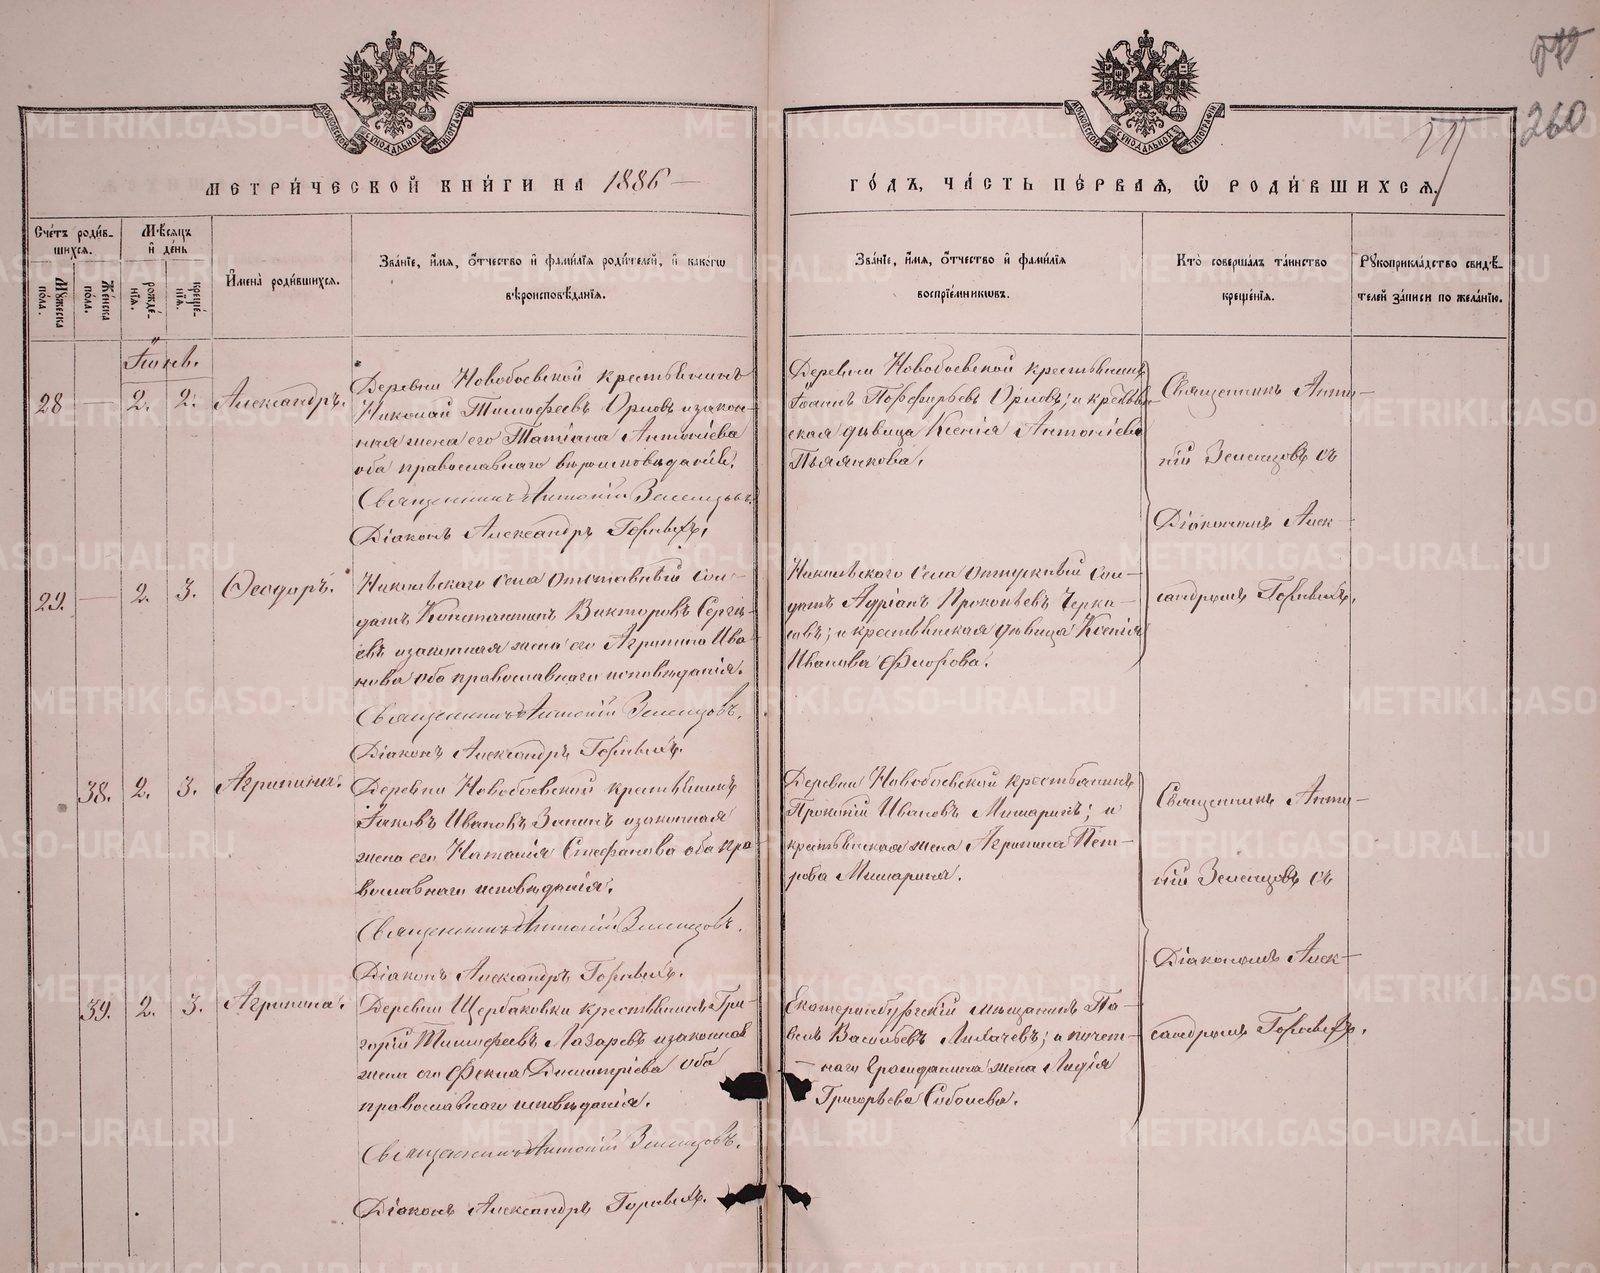 579
260
МЕТРИ́ЧЕСКОЙ КНИ́ГИ НА 1886 —
ГО́ДЪ, ЧА́СТЬ ПЕ́РВАЯ, Ѡ РОДИ́ВШИХСЯ.
Сче́тъ роди́в-
шихся.
Мꙋжеска по́ла.
Же́нска по́ла.
Мѣсяцъ и де́нь
рожде́нїя.
креще́нїя.
И҆мена̀ роди́вшихся.
Зва́нїе, и҆мя, ѻ҆тчество и҆ фами́лїя роди́телей, и҆ како́гѡ
вѣроисповѣ́данїя.
Зва́нїе, и҆мя, ѻ҆тчество и҆ фами́лїя
воспрїе́мникѡвъ.
Кто̀ соверша́лъ та́инство
креще́нїя.
Рꙋкоприкла́дство свидѣ́-
телей за́писи по жела́нїю.
Іюнь.
28 — 2. 2. Александръ.
Деревни Новобоевской крестьянинъ
Николай Тимофеевъ Орловъ и закон-
ная жена его Татіана Антоніева
оба православнаго вѣроисповѣданія.
Священникъ Антоній Зеленцовъ.
Діаконъ Александръ Горныхъ.
Деревни Новобоевской крестьянинъ
Іоаннъ Порфирьевъ Орловъ; и крестьян-
ская дѣвица Ксенія Антоніева
Пьянкова.
Священникъ Анто-
ній Зеленцовъ съ
Діакономъ Алек-
сандромъ Горныхъ.
29. — 2. 3. Ѳеодоръ.
села Отставной сол-
датъ Константинъ Викторовъ Сергѣ-
евъ и законная жена его Агрипина Ива-
нова оба православнаго исповѣданія.
Священникъ Антоній Зеленцовъ.
Діаконъ Александръ Горныхъ.
села Отпускной сол-
датъ Адріанъ Прокопьевъ Черка-
совъ; и крестьянская дѣвица Ксенія
Иванова Флорова.
38. 2. 3. Агрипина.
Деревни Новобоевской крестьянинъ
Іаковъ Ивановъ Зонинъ и законная
жена его Наталія Стефанова оба пра-
вославнаго исповѣданія.
Священникъ Антоній Зеленцовъ.
Діаконъ Александръ Горныхъ.
Деревни Новобоевской крестьянинъ
Прокопій Ивановъ Мишаринъ; и
крестьянская жена Агрипина Пет-
рова Мишарина.
Священникъ Анто-
ній Зеленцовъ съ
Діакономъ Алек-
сандромъ Горныхъ.
39. 2. 3. Агрипина.
Деревни Щербаковки крестьянинъ Гри-
горій Тимофеевъ Лазаревъ и законная
жена его Фекла Димитріева оба
православнаго исповѣданія.
Священникъ Антоній Зеленцовъ.
Діаконъ Александръ Горныхъ.
Екатеринбургскій мѣщанинъ Па-
велъ Васильевъ Лихачевъ; и почет-
наго Гражданина жена Лидія
Григорьева Соболева.